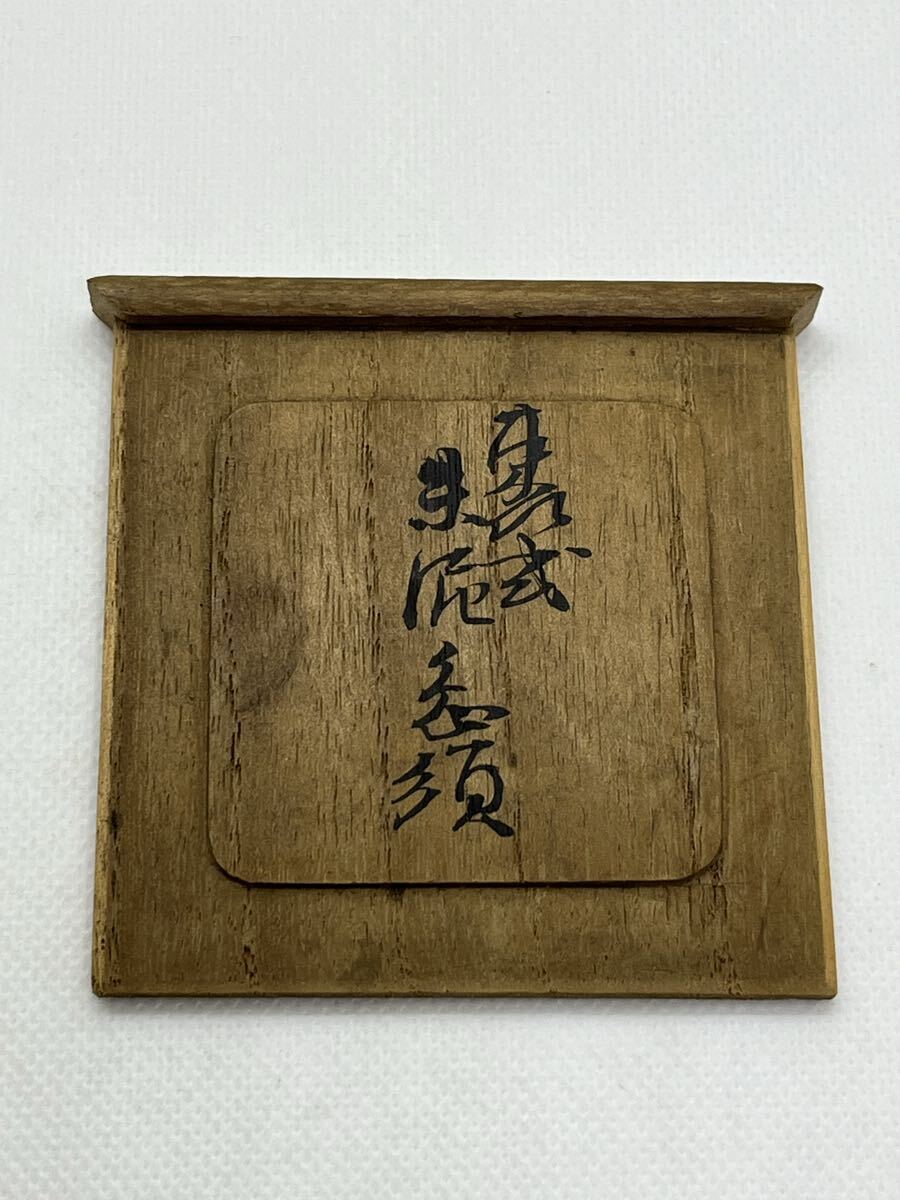 式
朱泥急須